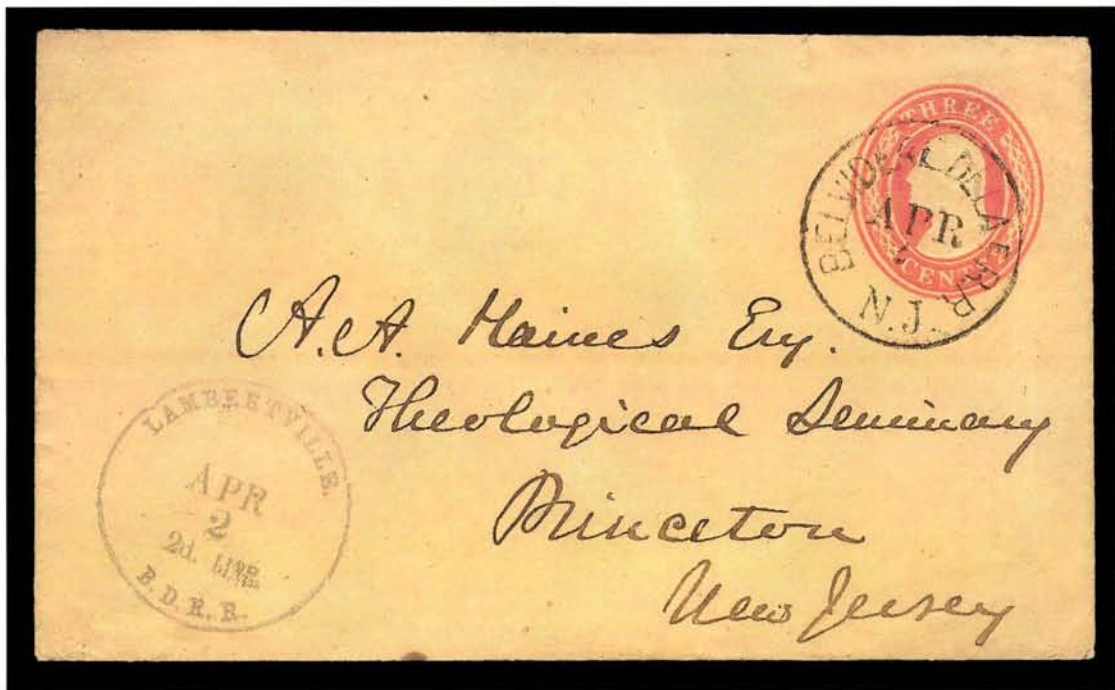 THREE
CENTS
BELVIDERE DELA R.R.
APR
2
N.J.
A.A. Haines Esq.
Theological Seminary
Princeton
New Jersey
LAMBERTVILLE.
APR
2
2d. LINE
B.D.R.R.